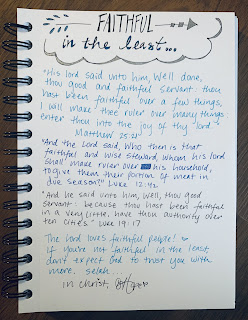 FAITHFUL
in the least...
"His lord said unto him, Well done,
thou good and faithful servant: thou
hast been faithful over a few things,
I will make thee ruler over many things:
enter thou into the joy of thy lord."
Matthew 25:21
"And the Lord said, Who then is that
faithful and wise steward, whom his lord
shall make ruler over his household,
to give them their portion of meat in
due season?" Luke 12:42
"And he said unto him, Well, thou good
servant: because thou hast been faithful
in a very little, have thou authority over
ten cities." Luke 19:17
The Lord loves faithful people!
If you're not faithful in the least,
don't expect God to trust you with
more, selah...
in Christ,